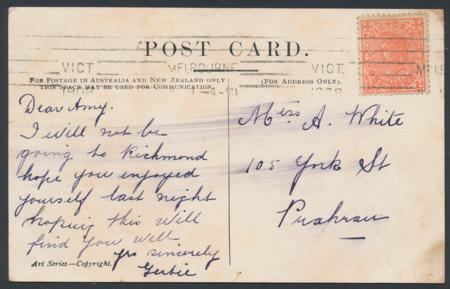 POST CARD.
VICT. MELBOURNE VICT. MELB
FOR POSTAGE IN AUSTRALIA AND NEW ZEALAND ONLY
THIS SPACE MAY BE USED FOR COMMUNICATION.
(FOR ADDRESS ONLY).
Dear Amy.
I will not be
going to Richmond
hope you enjoyed
yourself last night
hoping this will
find you well
yrs sincerely
Gertie
Art Series.—Copyright.
Miss A. White
105 York St
Prahran